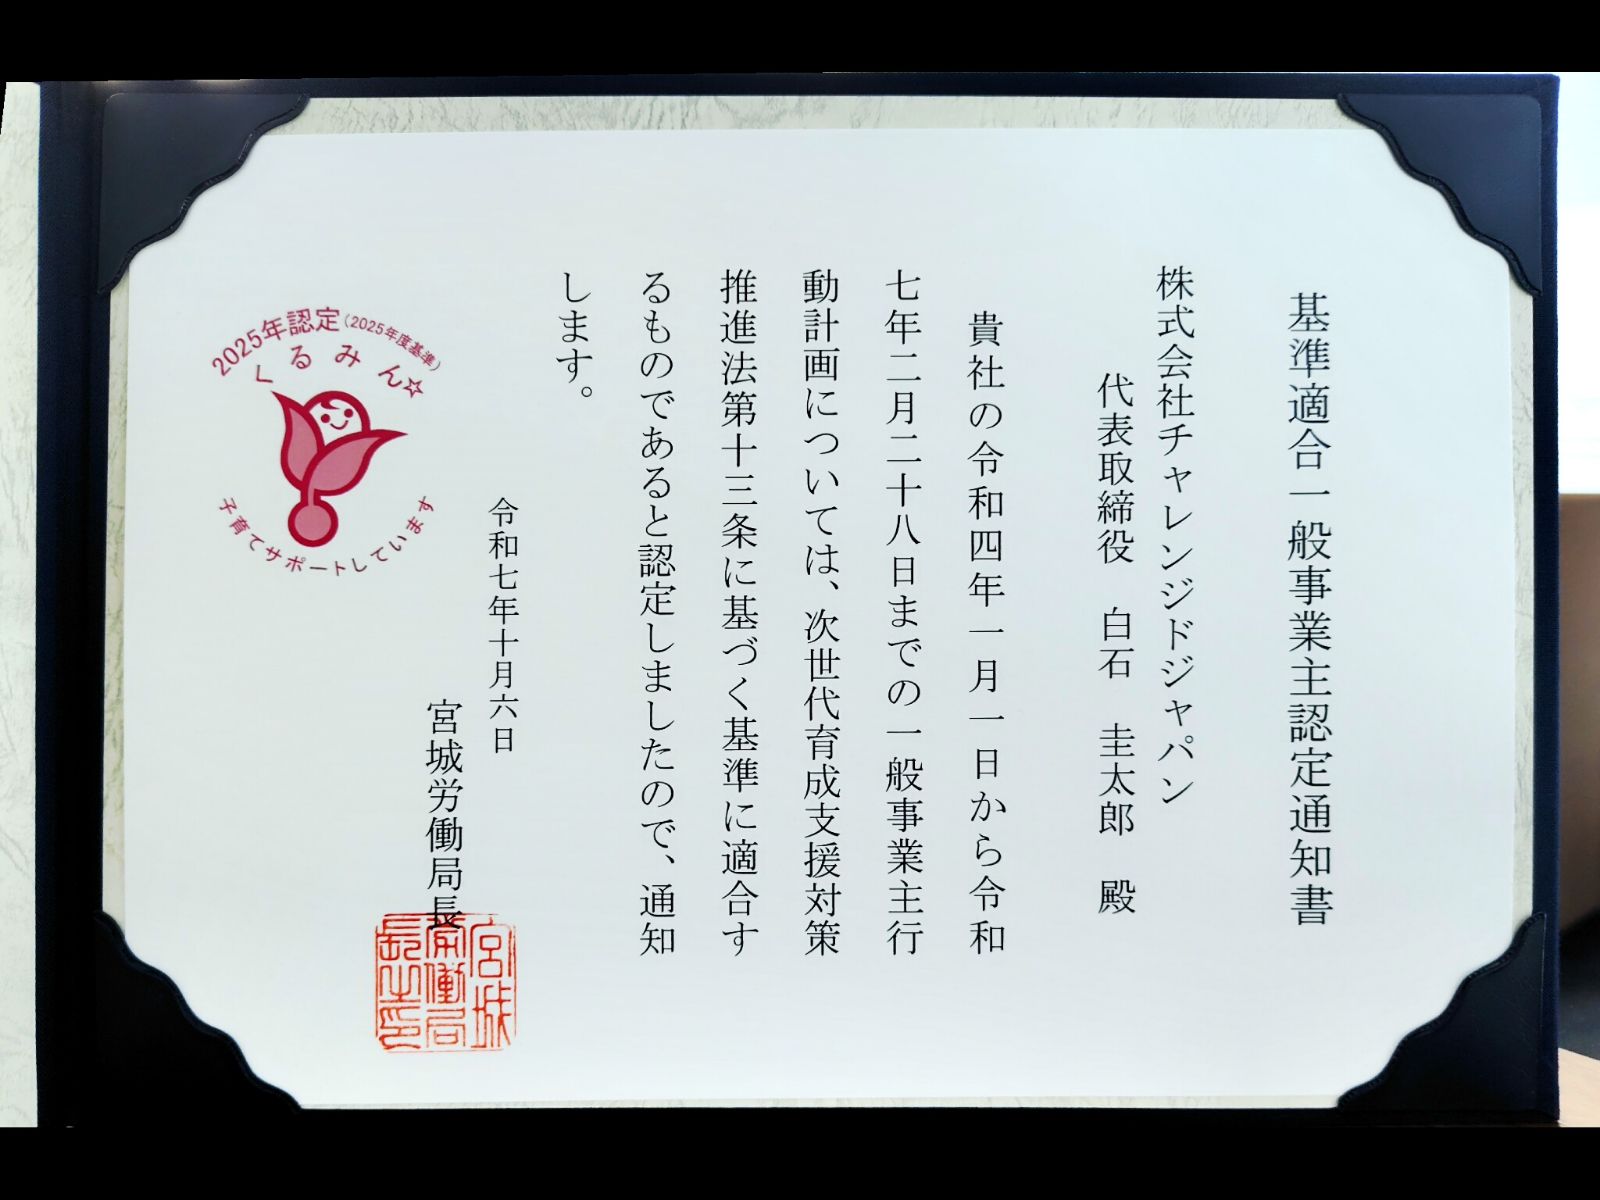 基準適合一般事業主認定通知書
株式会社チャレンジドジャパン
代表取締役 白石 圭太郎 殿
貴社の令和四年一月一日から令和
七年二月二十八日までの一般事業主行
動計画については、次世代育成支援対策
推進法第十三条に基づく基準に適合す
るものであると認定しましたので、通知
します。
令和七年十月六日
宮城労働局長
宮城
労働局
長之印
2025年認定(2025年度基準)
くるみん☆
子育てサポートしています